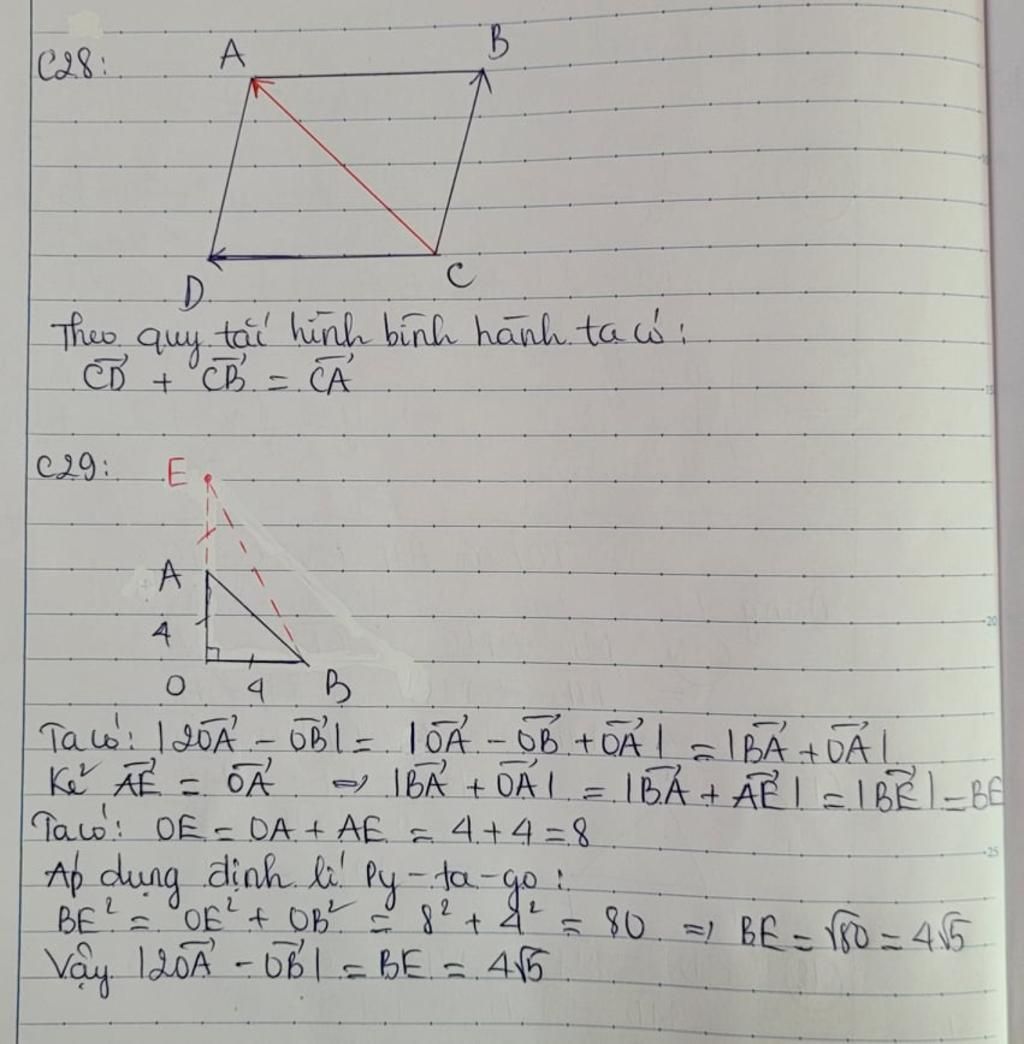 C28:
A
B
D
C
Theo quy tắc hình bình hành ta có:
\overrightarrow{CD} + \overrightarrow{CB} = \overrightarrow{CA}
C29:
E
A
4
O 4 B
Ta có: |2\overrightarrow{OA} - \overrightarrow{OB}| = |\overrightarrow{OA} - \overrightarrow{OB} + \overrightarrow{OA}| = |\overrightarrow{BA} + \overrightarrow{OA}|
Kẻ \overrightarrow{AE} = \overrightarrow{OA} ⇒ |\overrightarrow{BA} + \overrightarrow{OA}| = |\overrightarrow{BA} + \overrightarrow{AE}| = |\overrightarrow{BE}| = BE
Ta có: OE = OA + AE = 4 + 4 = 8
Áp dụng định lí Py-ta-go:
BE² = OE² + OB² = 8² + 4² = 80 ⇒ BE = √80 = 4√5
Vậy |2\overrightarrow{OA} - \overrightarrow{OB}| = BE = 4√5
20
25